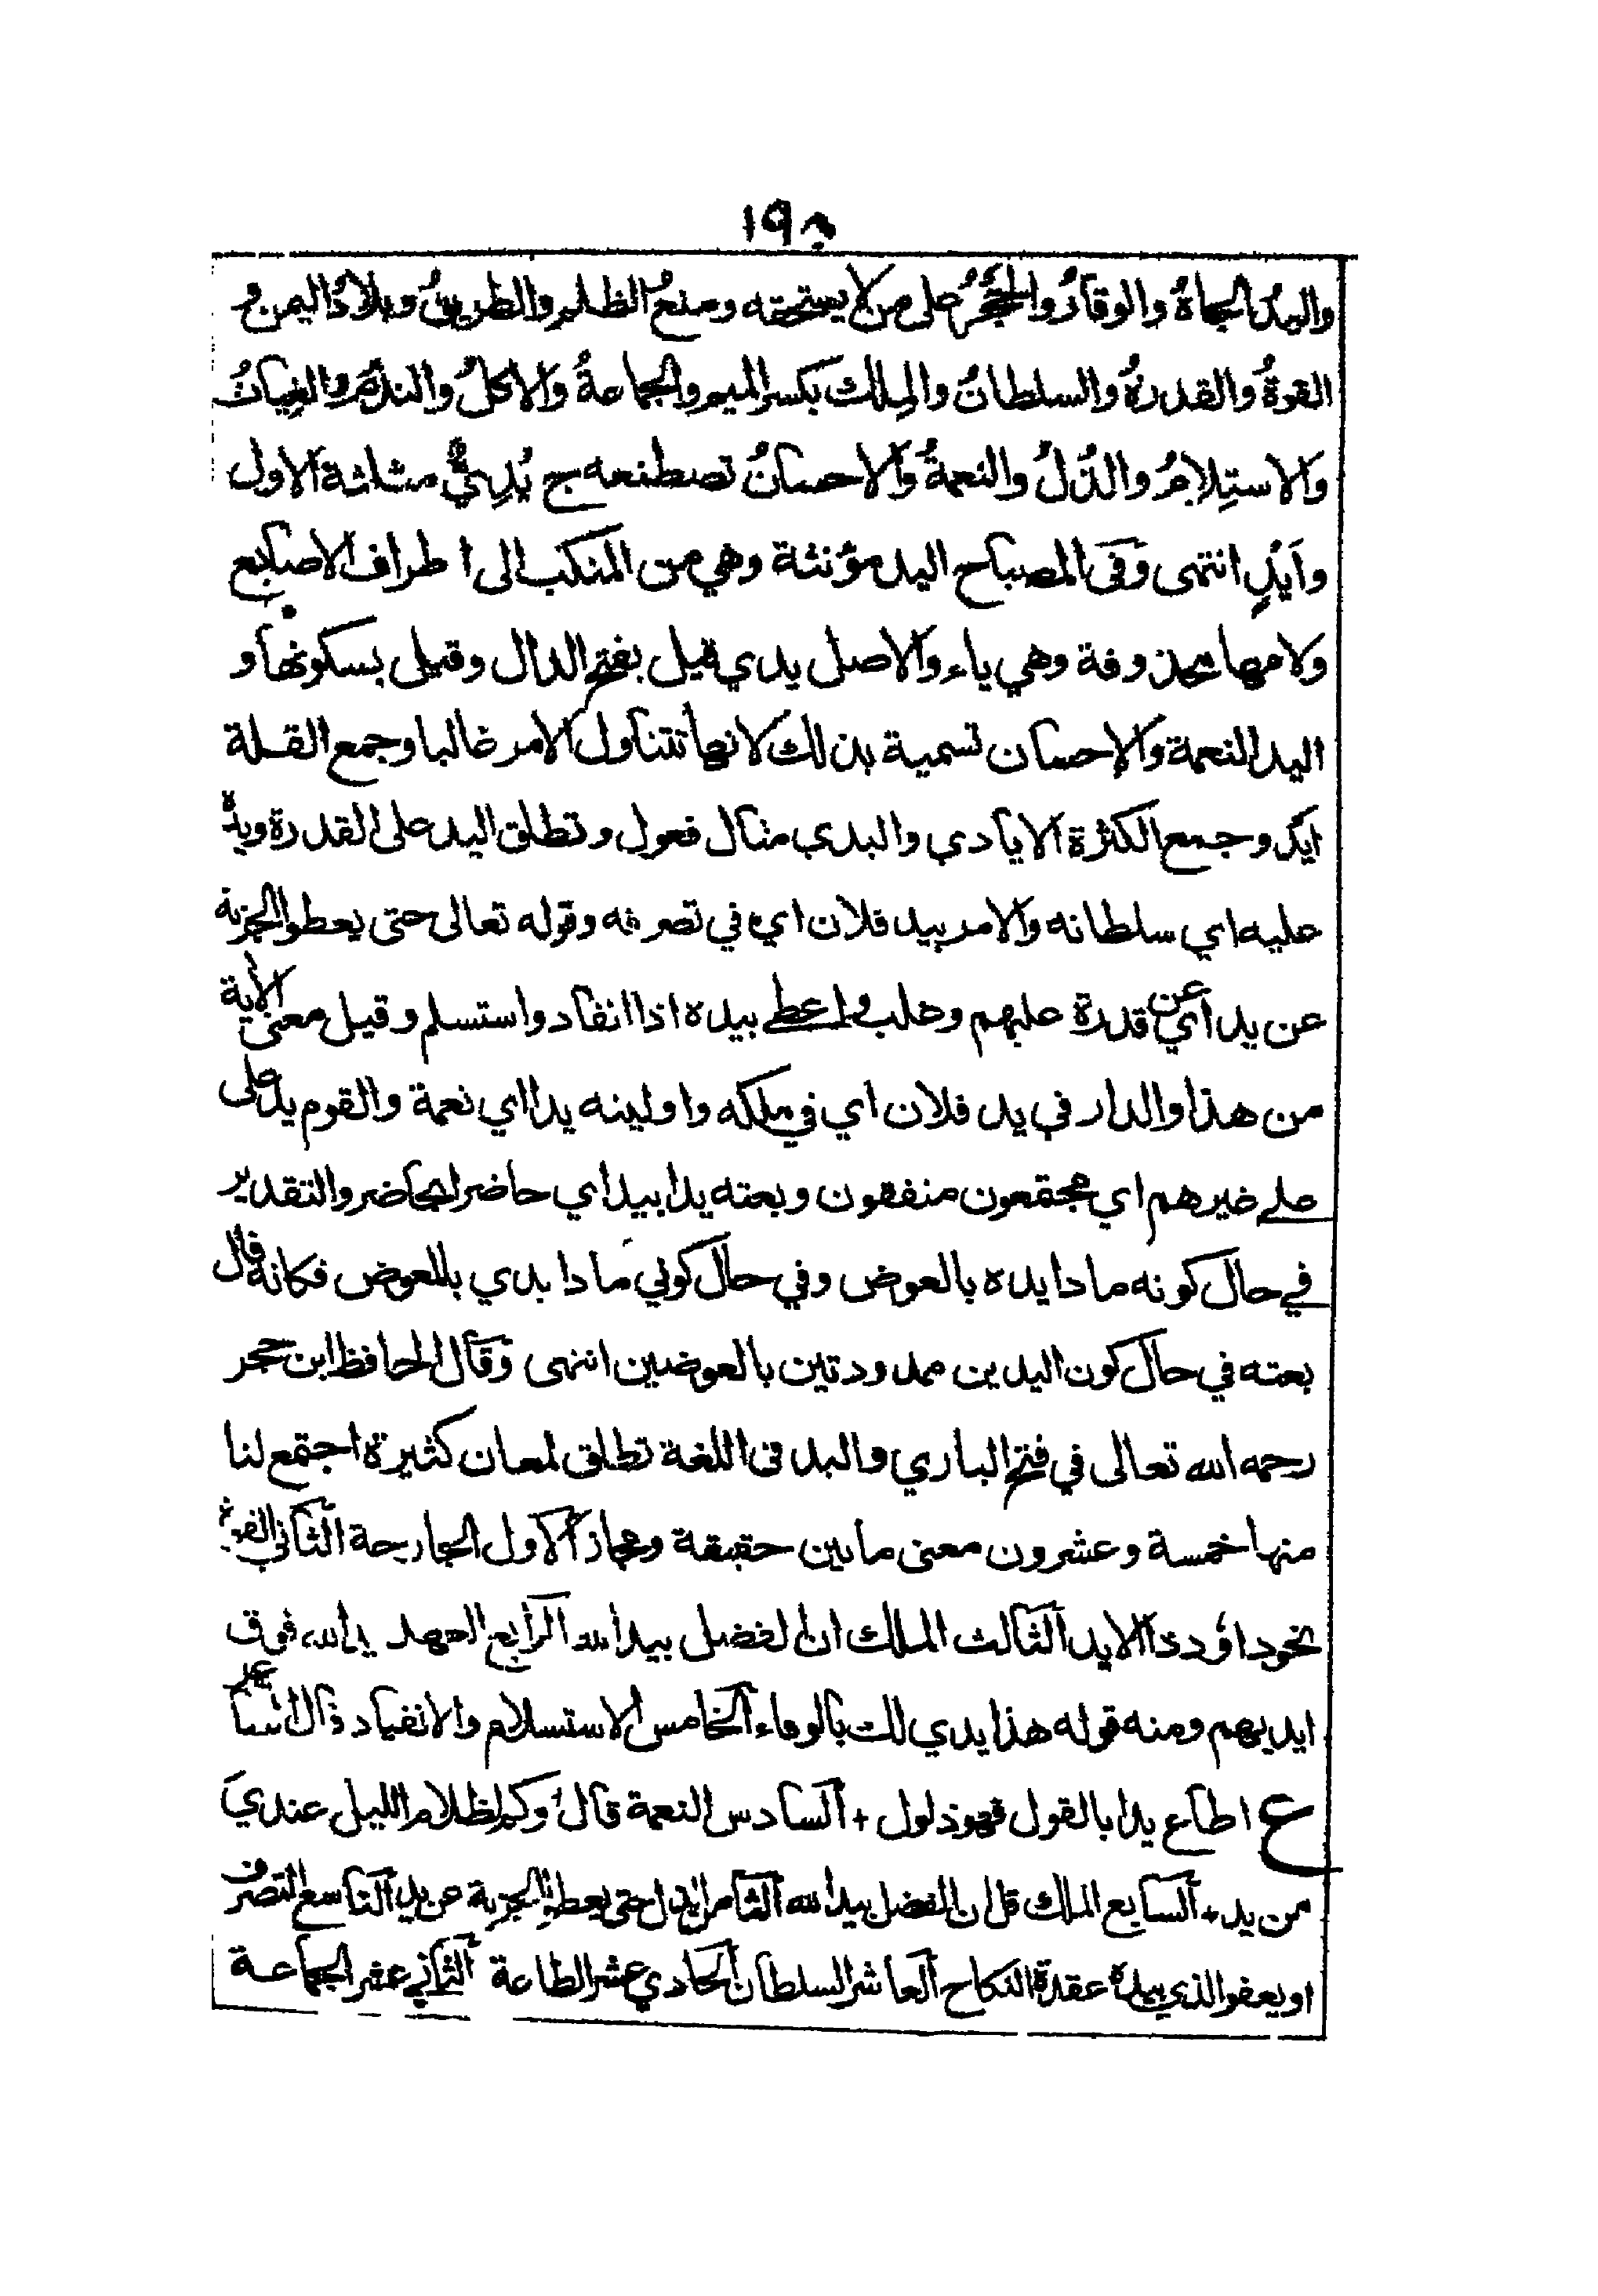 ١٩٨
واليد الجاه والوقار والحجر على من لا يستحقه ومنع الظلم والطريق وبلاد اليمن و
القوة والقدرة والسلطان والملك بكسر الميم والجماعة والاكل والندم والغياث
والاستلام والذل والنعمة والاحسان تصطنعه ج يدي مثلثة الاول
وايد انتهى وفى المصباح اليد مؤنثة وهي من المنكب الى اطراف الاصابع
ولامها محذوفة وهي ياء والاصل يدي قيل بفتح الدال وقيل بسكونها و
اليد النعمة والاحسان تسمية بذلك لانها تتناول الامر غالبا وجمع القلة
ايد وجمع الكثرة الايادي واليدي مثال فعول وتطلق اليد على القدرة ويده
عليه اي سلطانه والامر بيد فلان اي في تصرفه وقوله تعالى حتى يعطوا الجزية
عن يد اي عن قدرة عليهم وغلب واعطى بيده اذا انقاد واستسلم وقيل معنى الآية
من هذا والدار في يد فلان اي في ملكه واوليته يدا اي نعمة والقوم يد على
على غيرهم اي مجتمعون متفقون وبعته يدا بيد اي حاضرا بحاضر والتقدير
في حال كونه مادا يده بالعوض وفي حال كوني مادا يدي بالمعوض فكانه قال
بعته في حال كون اليدين ممدودتين بالعوضين انتهى وقال الحافظ ابن حجر
رحمه الله تعالى في فتح الباري واليد في اللغة تطلق لمعان كثيرة اجتمع لنا
منها خمسة وعشرون معنى ما بين حقيقة ومجاز الاول الجارحة الثاني القوة
نحو داؤد ذا الايد الثالث الملك ان الفضل بيد الله الرابع العهد يد الله فوق
ايديهم ومنه قوله هذا يدي لك بالوفاء الخامس الاستسلام والانقياد قال الشاعر
ع اطاع يدا بالقول فهو ذلول + السادس النعمة قال وكم لظلام الليل عندي
من يد + السابع الملك قل ان الفضل بيد الله الثامن الذل حتى يعطوا الجزية عن يد التاسع التصرف
او يعفو الذي بيده عقدة النكاح العاشر السلطان الحادي عشر الطاعة الثاني عشر الجماعة